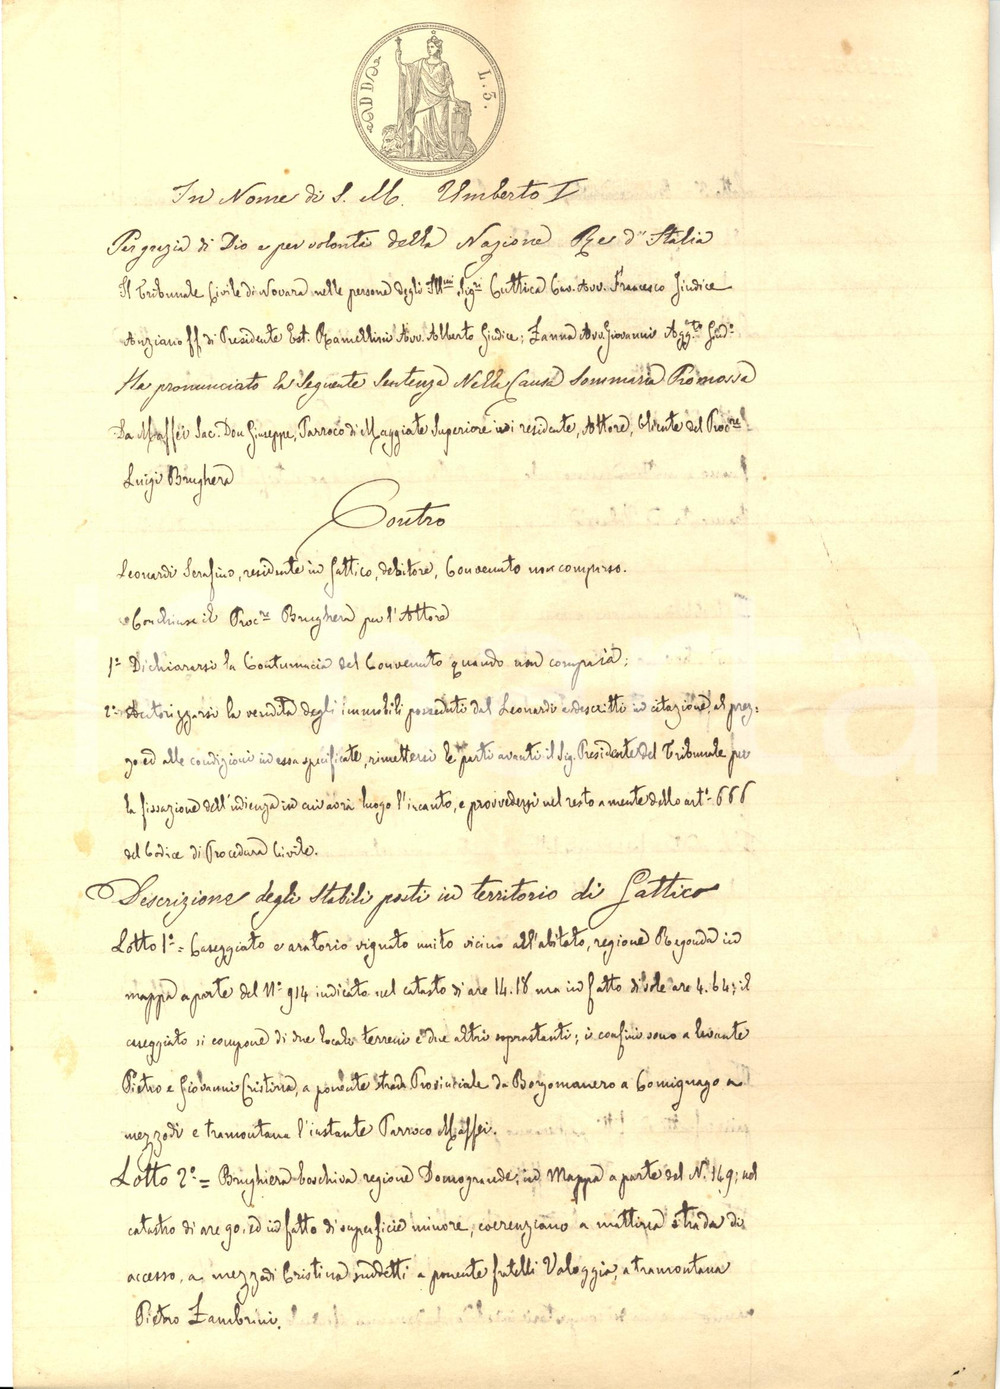 L. 3.
In Nome di S. M. Umberto I
Per grazia di Dio e per volontà della Nazione Re d'Italia
Il Tribunale Civile di Novara nelle persone degli Ill.mi Sig.ri Cuttica Cav. Avv. Francesco Giudice
Anziano ff. di Presidente Est. Ramellini Avv. Alberto Giudice; Zanna Avv. Giovanni Agg.to Giud.e
Ha pronunciato la seguente Sentenza Nella Causa Sommaria Promossa
Da Maffei Sac. Don Giuseppe, Parroco di Maggiate Superiore ivi residente, Attore, Cliente del Proc.re
Luigi Brughera
Contro
Leonardi Serafino, residente in Gattico, debitore, Convenuto non comparso.
Conchiuse il Proc.re Brughera per l'Attore
1° Dichiararsi la Contumacia del Convenuto quando non compaia;
2° Autorizzarsi la vendita degli immobili posseduti dal Leonardi e descritti in citazione, al prez=
zo ed alle condizioni in essa specificate, rimettersi le parti avanti il Sig. Presidente del Tribunale per
la fissazione dell'udienza in cui avrà luogo l'incanto, e provvedersi nel resto a mente dello art.° 666
del Codice di Procedura Civile.
Descrizione degli Stabili posti in territorio di Gattico
Lotto 1° = Caseggiato e aratorio vignato unito vicino all'abitato, regione Regonda in
mappa a parte del N° 914 indicato nel catasto di are 14.18 ma in fatto di sole are 4.64; il
caseggiato si compone di due locali terreni e due altri soprastanti; i confini sono a levante
Pietro e Giovanni Cristina, a ponente strada Provinciale da Borgomanero a Comignago a
mezzodì e tramontana l'instante Parroco Maffei.
Lotto 2° = Brughiera boschiva regione Domogrande, in Mappa a parte del N.° 149; nel
catasto di are 90, ed in fatto di superficie minore, coerenziano a mattina strada di
accesso, a mezzodì Cristina suddetti a ponente fratelli Valoggia, a tramontana
Pietro Zambrini.